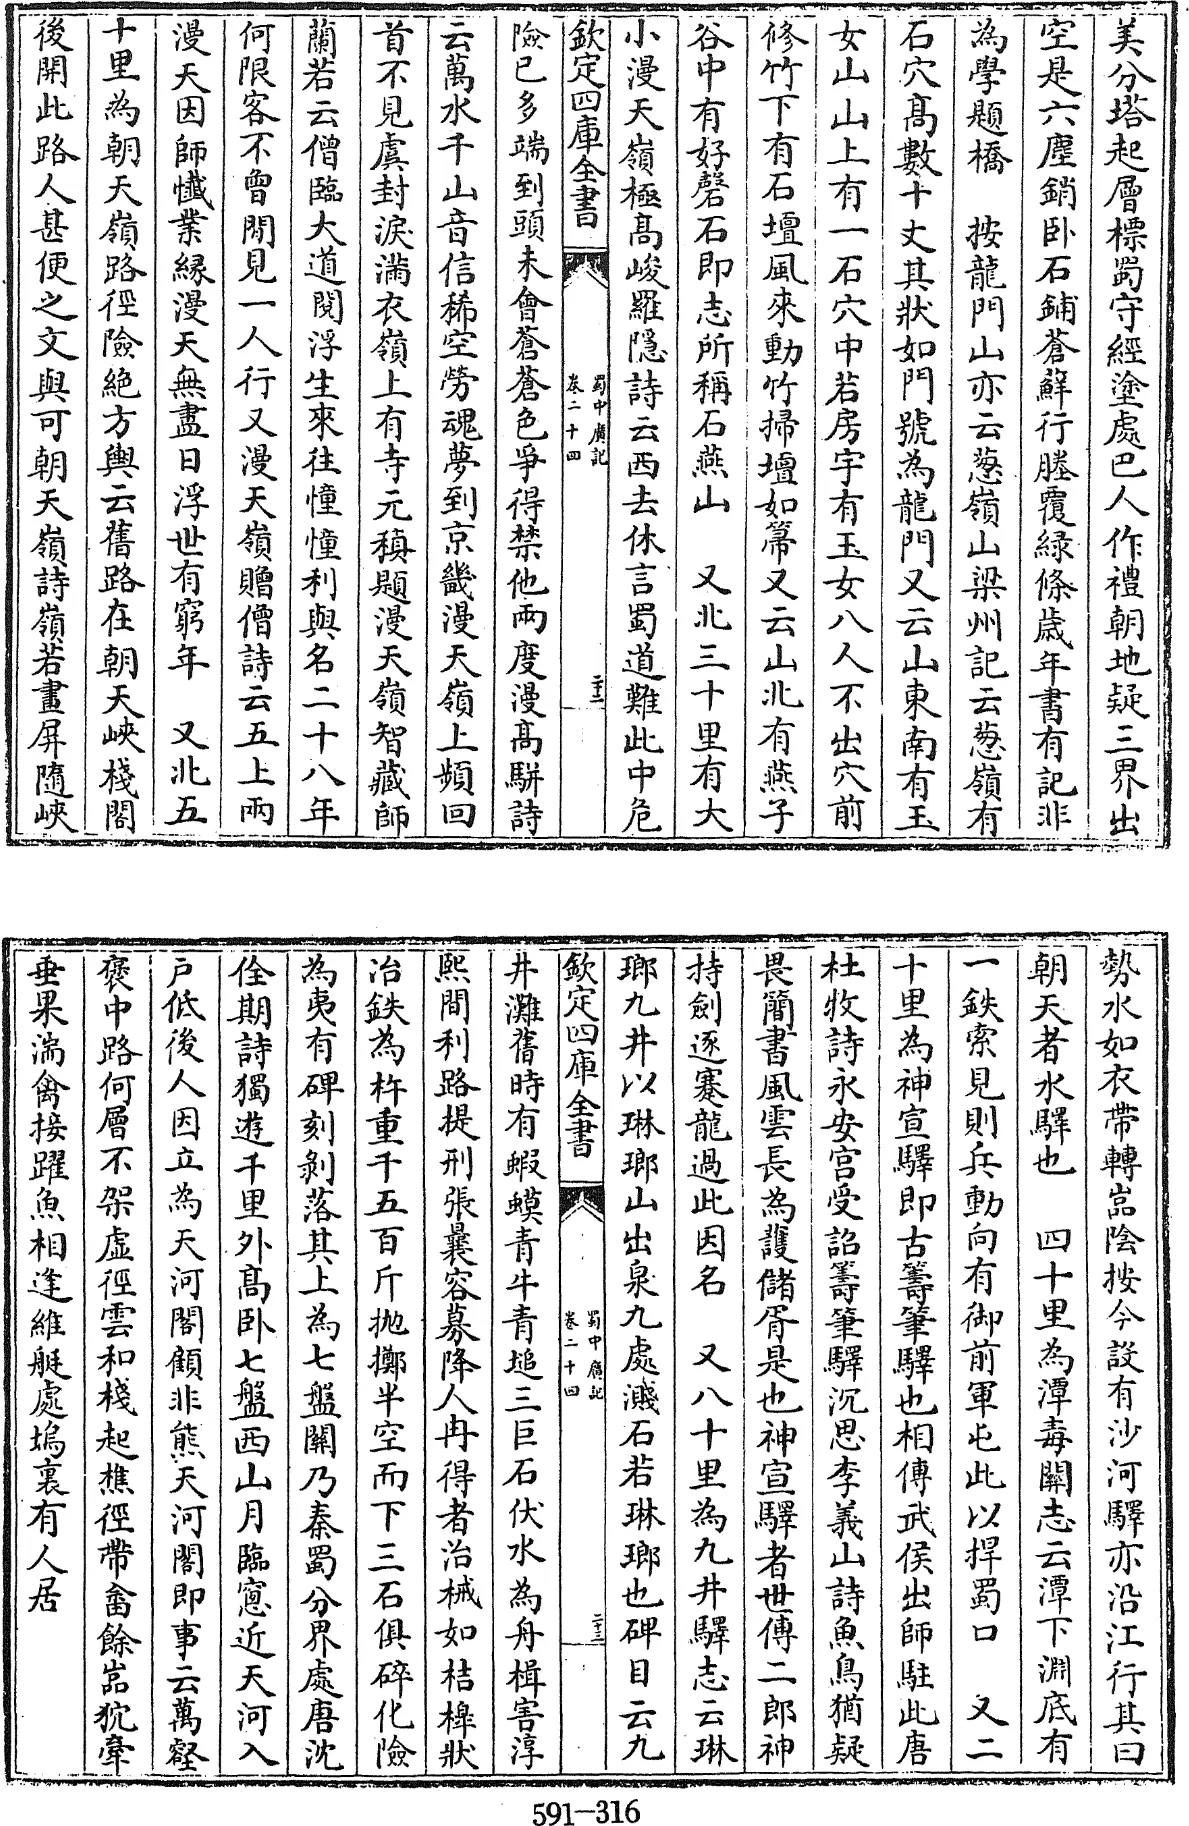 美分塔起層標蜀守經塗處巴人作禮朝地疑三界出
空是六塵銷卧石鋪蒼蘚行塍覆緑條歲年書有記非
為學題橋　按龍門山亦云葱嶺山梁州記云葱嶺有
石穴髙數十丈其狀如門號為龍門又云山東南有玉
女山山上有一石穴中若房宇有玉女八人不出穴前
修竹下有石壇風來動竹掃壇如箒又云山北有燕子
谷中有好磬石即志所稱石燕山　又北三十里有大
小漫天嶺極髙峻羅隱詩云西去休言蜀道難此中危
欽定四庫全書
蜀中廣記
卷二十四
二十二
險已多端到頭未會蒼蒼色爭得禁他兩度漫髙駢詩
云萬水千山音信稀空勞魂夢到京畿漫天嶺上頻回
首不見虞封淚滿衣嶺上有寺元稹題漫天嶺智藏師
蘭若云僧臨大道閲浮生來往憧憧利與名二十八年
何限客不曾閒見一人行又漫天嶺贈僧詩云五上兩
漫天因師懴業緣漫天無盡日浮世有窮年　又北五
十里為朝天嶺路徑險絶方輿云舊路在朝天峽棧閣
後開此路人甚便之文與可朝天嶺詩嶺若畫屏隨峽
勢水如衣帶轉嵓陰按今設有沙河驛亦沿江行其曰
朝天者水驛也　四十里為潭毒關志云潭下淵底有
一鉄索見則兵動向有御前軍屯此以捍蜀口　又二
十里為神宣驛即古籌筆驛也相傳武侯出師駐此唐
杜牧詩永安宫受詔籌筆驛沉思李義山詩魚鳥猶疑
畏簡書風雲長為護儲胥是也神宣驛者世傳二郎神
持劍逐蹇龍過此因名　又八十里為九井驛志云琳
瑯九井以琳瑯山出泉九處濺石若琳瑯也碑目云九
欽定四庫全書
蜀中廣記
卷二十四
二十三
井灘舊時有蝦蟆青牛青堆三巨石伏水為舟楫害淳
熙間利路提刑張曩容募降人冉得者治械如桔槔狀
冶鉄為杵重千五百斤抛擲半空而下三石俱碎化險
為夷有碑刻剝落其上為七盤關乃秦蜀分界處唐沈
佺期詩獨遊千里外髙卧七盤西山月臨窻近天河入
戶低後人因立為天河閣顧非熊天河閣即事云萬壑
褒中路何層不架虛徑雲和棧起樵徑帶畬餘嵓狖牽
垂果湍禽接躍魚相逢維艇處塢裏有人居
591—316